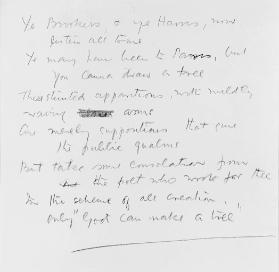 Ye Brookers, & ye Harris, now
listen all to me
Ye may have been to Paris, but
you canna draw a tree
These stunted apparitions, with wildly
waving arms
Are merely suppositions that give
the public qualms
But take some consolation from
the poet who wrote for thee
In the scheme of all creation,
only "God can make a tree